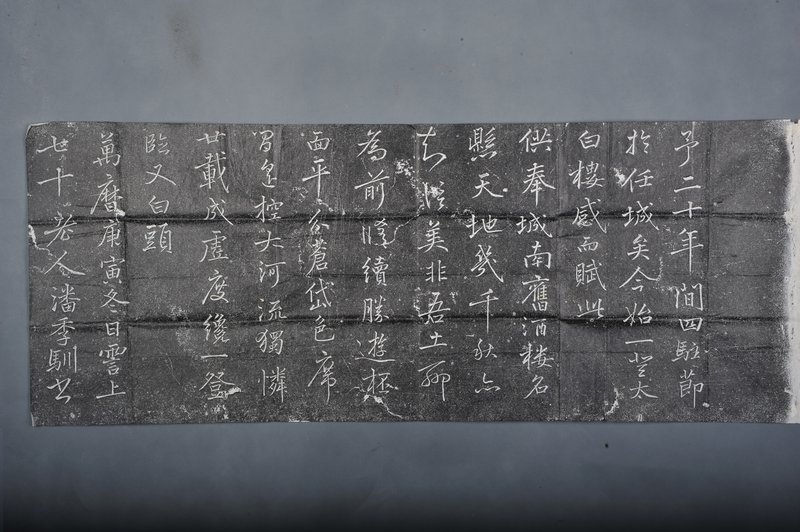 予二十年間四駐節
於任城矣今始一登太
白樓感而賦此
供奉城南舊酒樓名
懸天地幾千秋亦
知信美非吾土聊
為前脩續勝遊杯
面平分蒼岱色席
間遙控大河流獨憐
廿載成虛度纔一登
臨又白頭
萬曆庚寅冬日霅上
七十老人潘季馴書